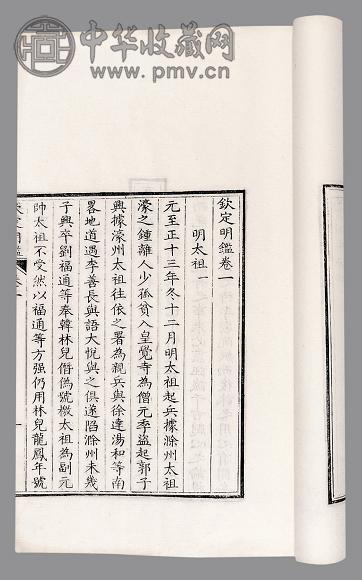 中华收藏网
www.pmv.cn
欽定明鑑卷一
明太祖一
元至正十三年冬十二月明太祖起兵據滁州太祖
濠之鍾離人少孤貧入皇覺寺為僧元季盜起郭子
興據濠州太祖往依之署為親兵與徐達湯和等南
畧地道遇李善長與語大悅與之俱遂陷滁州未幾
子興卒劉福通等奉韓林兒僭偽號檄太祖為副元
帥太祖不受然以福通等方强仍用林兒龍鳳年號
欽定明鑑 卷一 一